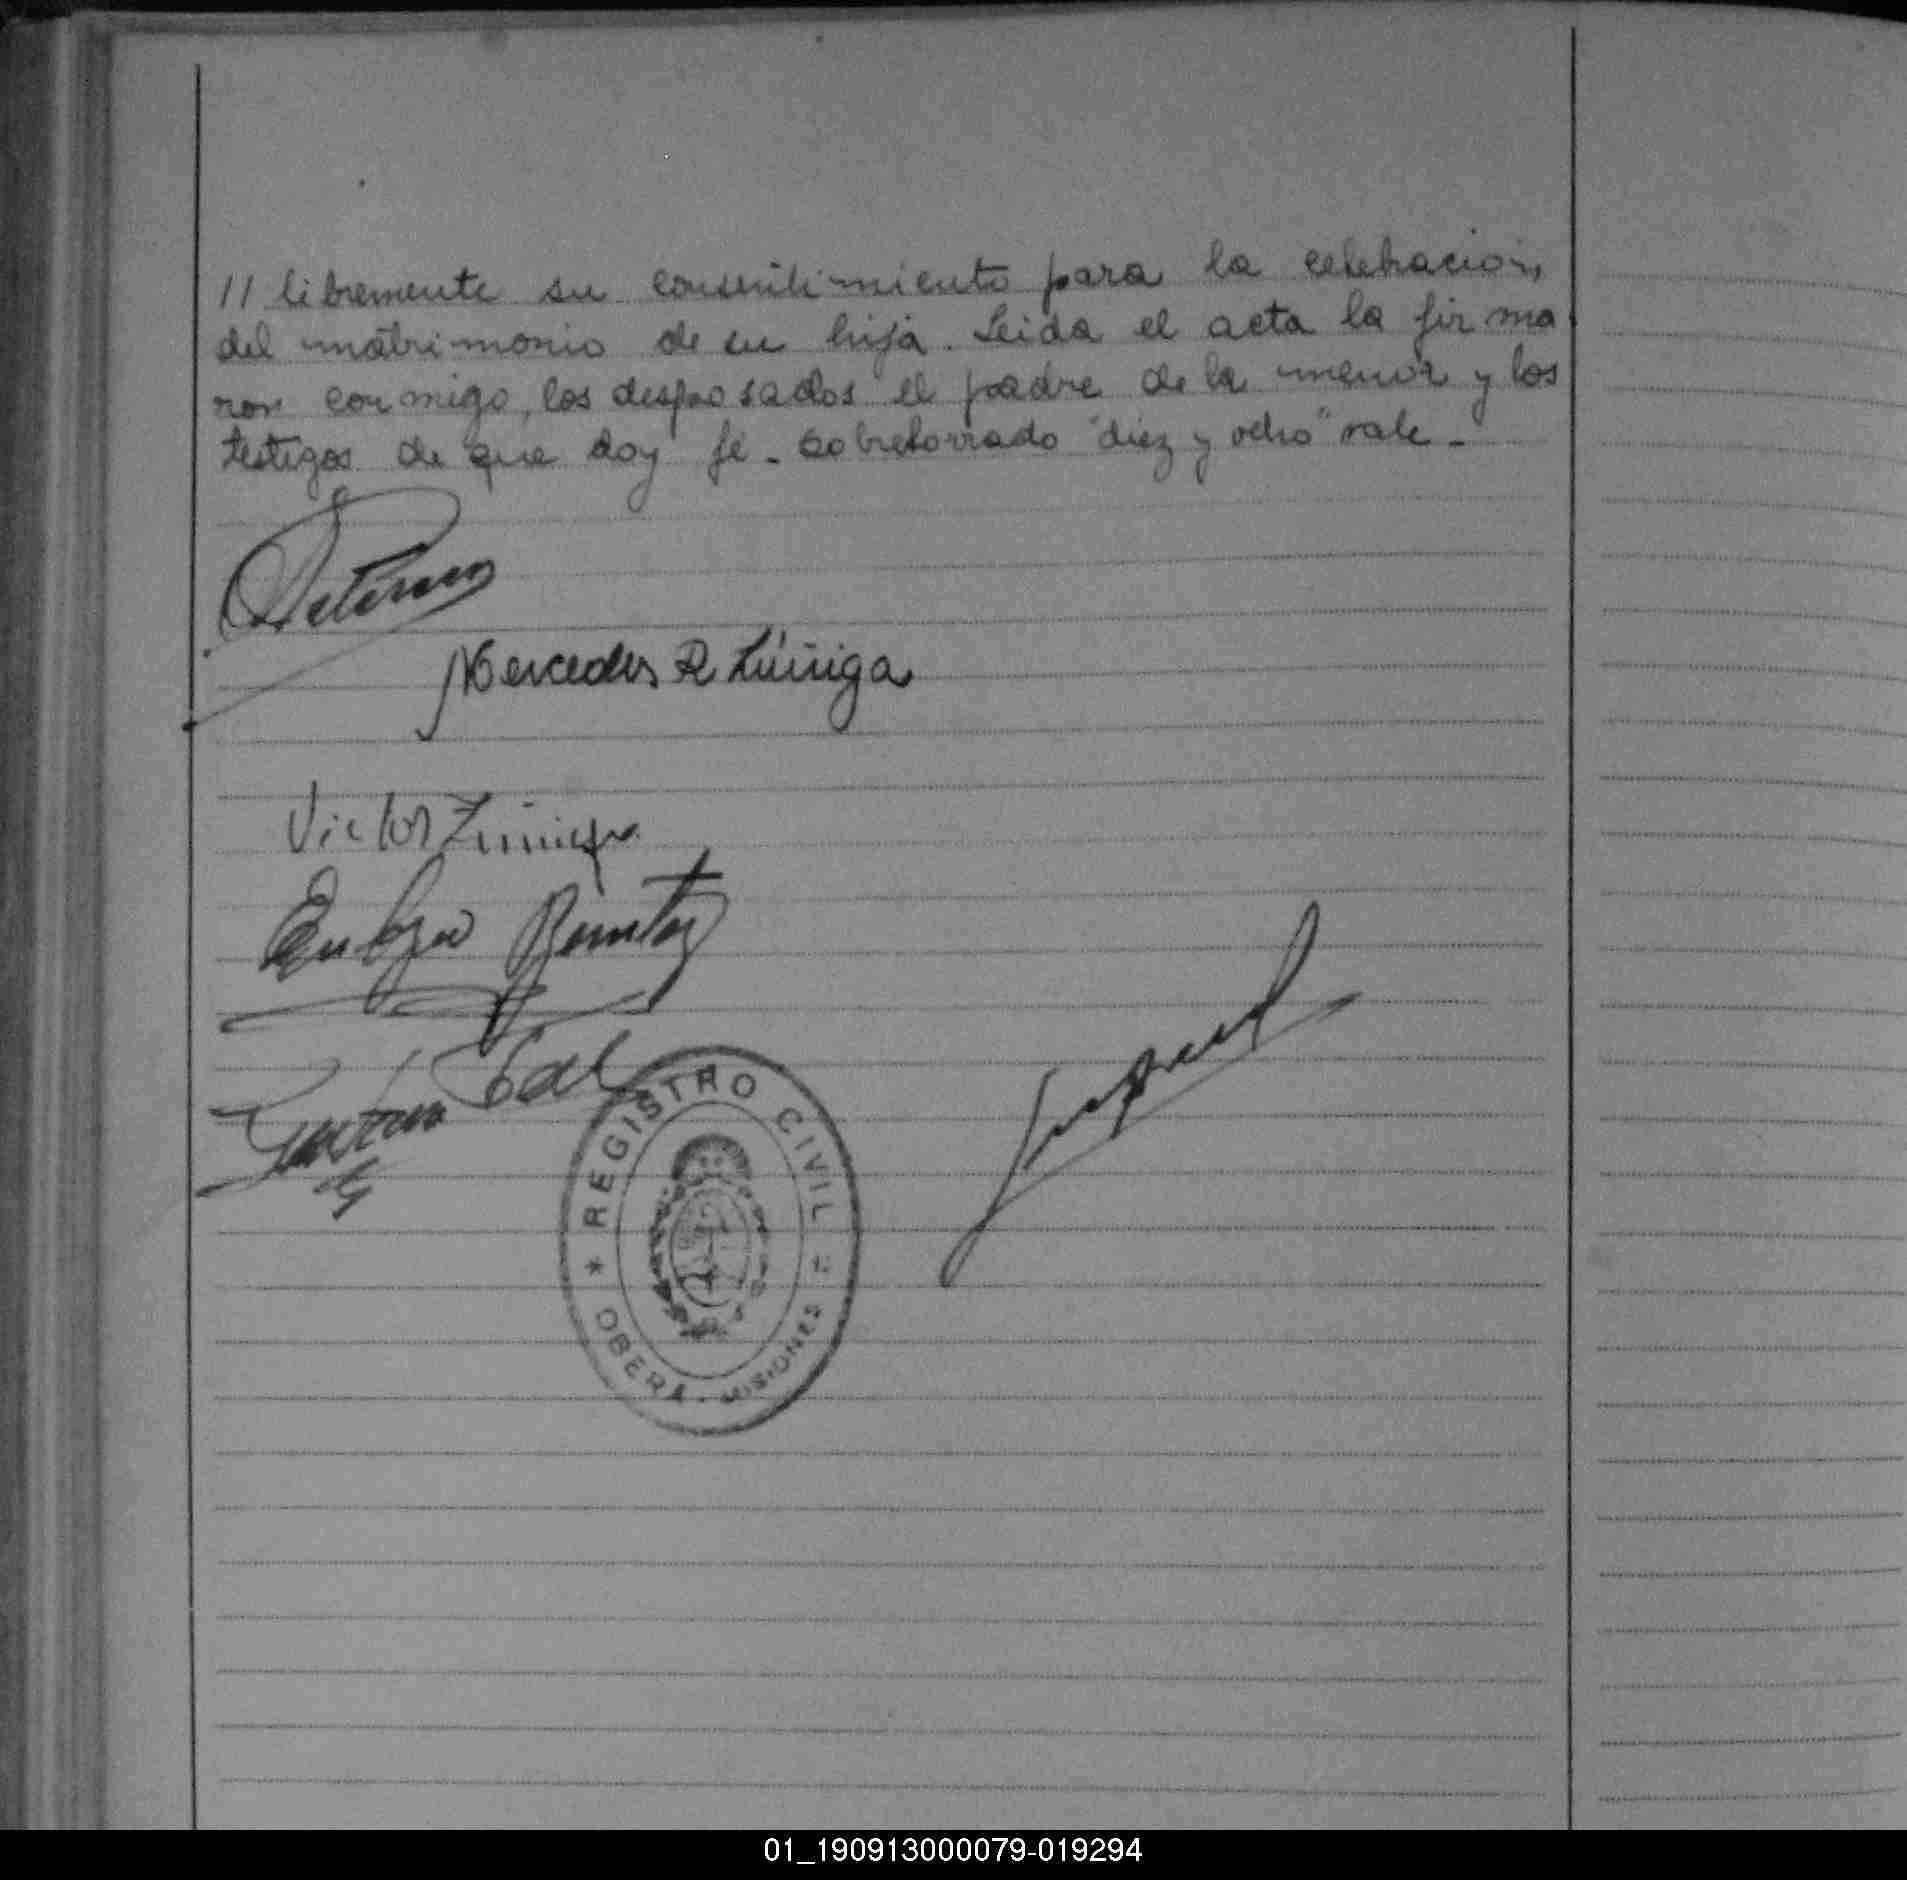 // libremente su consentimiento para la celebración
del matrimonio de su hija. Leida el acta la firma
ron conmigo, los desposados el padre de la menor y los
testigos de que doy fé. Sobreborrado "diez y ocho" vale -
Mercedes R Zúñiga
Victor Zuñiga
Eulogio Benitez
REGISTRO CIVIL
OBERA - MISIONES
01_190913000079-019294